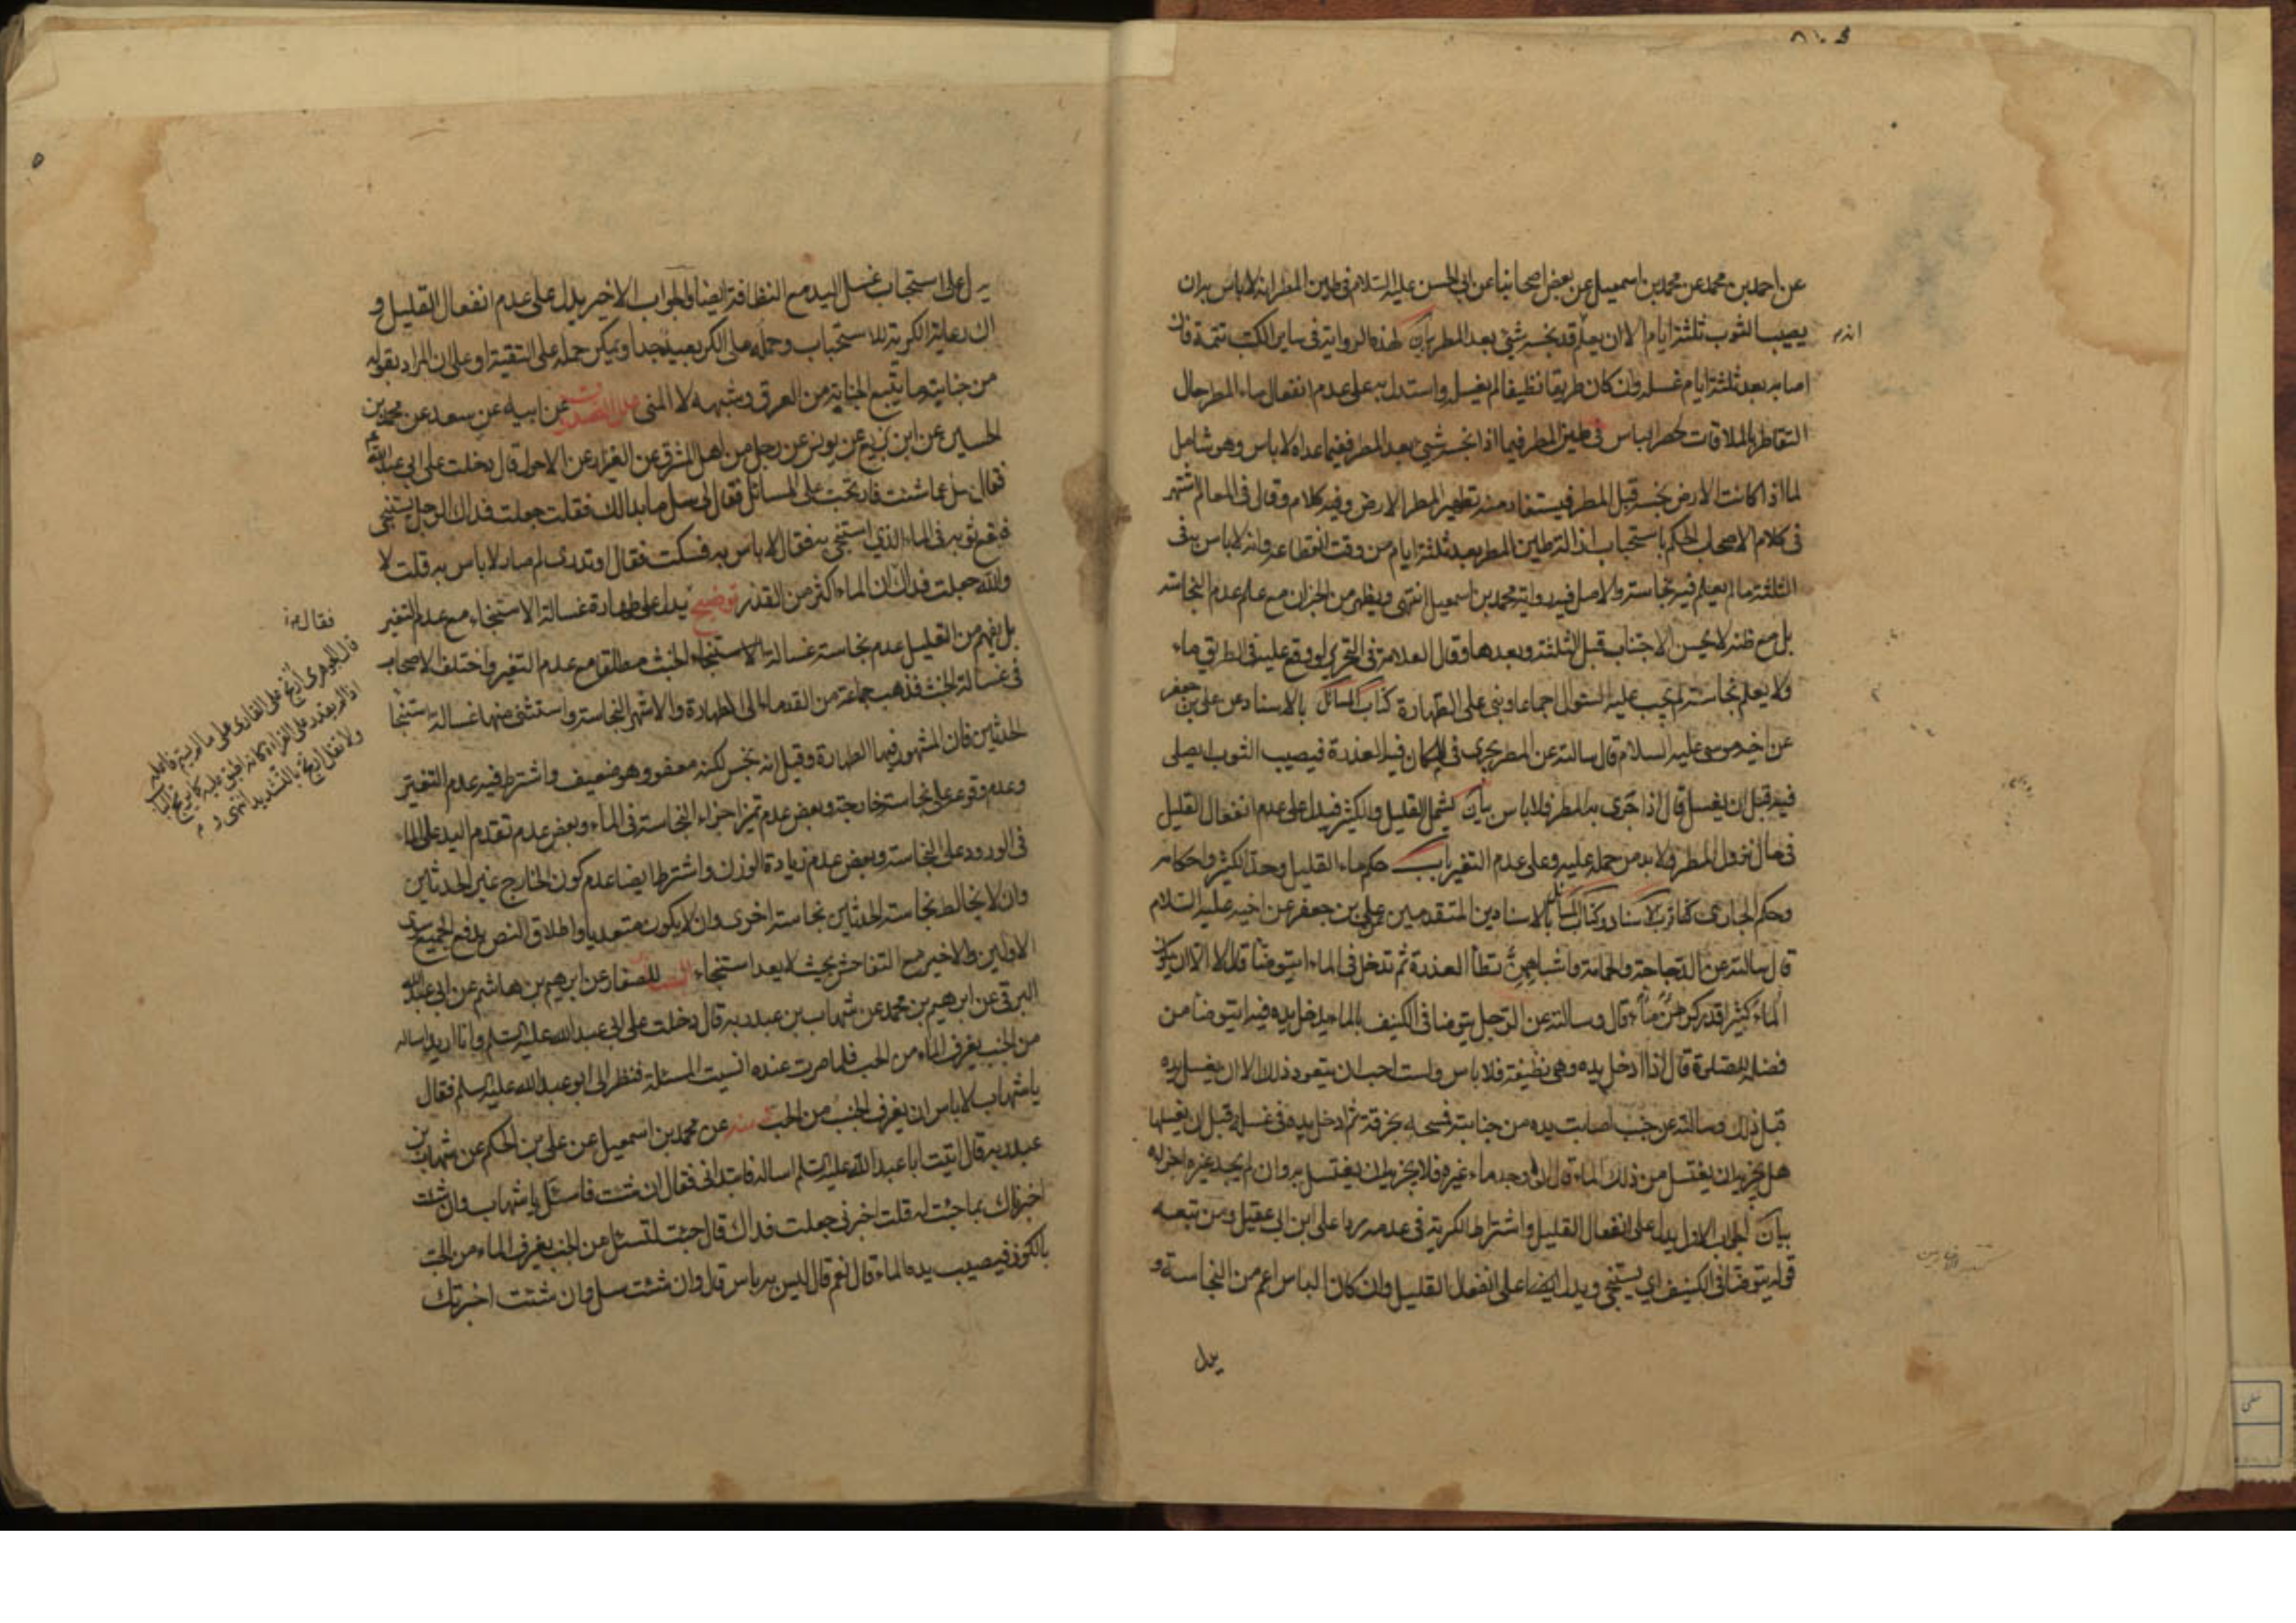 عن احمد بن محمد عن محمد بن اسمعيل عن بعض اصحابنا عن ابى الحسن عليه السلام فى طين المطر انه لا باس به ان
يصيب الثوب ثلثة ايام الا ان يعلم انه قد نجسه شئ بعد المطر بيان لهذه الرواية فى ساير الكتب تتمة فان
اصابه بعد ثلثة ايام غسله وان كان طريقا نظيفا لم يغسله واستدل به على عدم انفعال ماء المطر حال
التقاطر بالملاقات لحصر الباس فى طين المطر فيما اذا نجسه شئ بعد المطر ففيما عداه لا باس وهو شامل
لما اذا كانت الارض نجسة قبل المطر فيستفاد منه تطهير المطر الارض وفيه كلام وقال فى المعالم اشتهر
فى كلام الاصحاب الحكم باستحباب ازالة طين المطر بعد ثلثة ايام من وقت انقطاعه وانه لا باس به فى
الثلثة ما لم يعلم فيه نجاسة والاصل فيه رواية محمد بن اسمعيل انتهى ويظهر من الخبر ان مع علم عدم النجاسة
بل مع ظنه لا يحسن الاجتناب قبل الثلثة وبعدها وقال العلامة فى التحرير لو وقع عليه فى الطريق ماء
ولا يعلم نجاسته لم يجب عليه السئوال اجماعا وبنى على الطهارة كتاب المسائل بالاسناد عن على بن جعفر
عن اخيه موسى عليه السلام قال سالته عن المطر يجرى فى المكان فيه العذرة فيصيب الثوب ايصلى
فيه قبل ان يغسل قال اذا جرى به المطر فلا باس بيان يشمل القليل والكثير فيدل على عدم انفعال القليل
فى حال نزول المطر ولا بد من حمله عليه وعلى عدم التغير باب حكم ماء القليل وحد الكثير واحكامه
وحكم الجارى قرب الاسناد وكتاب المسائل بالاسنادين المتقدمين عن على بن جعفر عن اخيه عليه السلام
قال سالته عن الدجاجة والحمامة واشباههن تطأ العذرة ثم تدخل فى الماء ايتوضا قال لا الا ان يكون
الماء كثيرا قدر كر من ماء قال وسالته عن الرجل يتوضا فى الكنيف بالماء يدخل يده فيه ايتوضا من
فضله للصلوة قال اذا ادخل يده وهى نظيفة فلا باس ولست احب ان يتعود ذلك الا ان يغسل يده
قبل ذلك وسالته عن جنب اصابت يده من جنابة فمسحه بخرقة ثم ادخل يده فى غسله قبل ان يغسلها
هل يجزيه ان يغتسل من ذلك الماء قال ان وجد ماء غيره فلا يجزيه ان يغتسل به وان لم يجد غيره اجزاه
بيان الجواب الاول يدل على انفعال القليل واشتراط الكرية فى عدمه ردا على ابن ابى عقيل ومن تبعه
قوله يتوضا فى الكنيف اى يستنجى ويدل ايضا على انفعال القليل وان كان الباس اعم من النجاسة و
يدل
يدل على استحباب غسل اليد مع النظافة ايضا والجواب الاخير يدل على عدم انفعال القليل و
ان رعاية الكرية للاستحباب وحمله على الكر بعيد جدا ويمكن حمله على التقية او على ان المراد بقوله
من جنابة ما يتبع الجنابة من العرق وشبهه لا المنى علل الصدوق عن ابيه عن سعد عن محمد بن
الحسين عن ابن بزيع عن يونس عن رجل من اهل المشرق عن العيزار عن الاحول قال دخلت على ابى عبد الله
فقال سل عما شئت فارتجت على المسائل فقال لى سل ما بدالك فقلت جعلت فداك الرجل يستنجى
فيقع ثوبه فى الماء الذى استنجى به فقال لا باس به فسكت فقال اوتدرى لم صار لا باس به قلت لا
والله جعلت فداك ان الماء اكثر من القذر توضيح يدل على طهارة غسالة الاستنجاء مع عدم التغير
بل يفهم من التعليل عدم نجاسة غسالة الاستنجاء الخبث مطلقا مع عدم التغير واختلف الاصحاب
فى غسالة الخبث فذهب جماعة من القدماء الى الطهارة والاشهر النجاسة واستثنى منها غسالة استنجا
الحدثين فان المشهور فيها الطهارة وقيل انه نجس لكنه معفو وهو ضعيف واشترط فيه عدم التغير
وعدم وقوعه على نجاسة خارجة وبعض عدم تميز اجزاء النجاسة فى الماء وبعض عدم تقدم اليد على الماء
فى الورود على النجاسة وبعض عدم زيادة الوزن واشترط ايضا عدم كون الخارج غير الحدثين
وان لا يخالط نجاسة الحدثين نجاسة اخرى وان لا يكون متعديا واطلاق النص يدفع الجميع سوى
الاولين والاخير مع التفاحش بحيث لا يعد استنجاء البصائر للصفار عن ابرهيم بن هاشم عن ابى عبد الله
البرقى عن ابرهيم بن محمد عن شهاب بن عبد ربه قال دخلت على ابى عبد الله عليه السلم وانا اريد اساله
من الجنب يغرف الماء من الحب فلما صرت عنده انسيت المسئلة فنظر الى ابو عبد الله عليه السلم فقال
يا شهاب لا باس ان يغرف الجنب من الحب منه عن محمد بن اسمعيل عن على بن الحكم عن شهاب بن
عبد ربه قال اتيت ابا عبد الله عليه السلم اساله فابتدانى فقال ان شئت فاسئل يا شهاب وان شئت
اخبرناك بما جئت له قلت اخبرنى جعلت فداك قال جئت لتسئل من الجنب يغرف الماء من الحب
بالكوز فيصيب يده الماء قال نعم قال ليس به باس قال وان شئت سل وان شئت اخبرتك
فقال
قال الجوهرى ارتج على القارى على ما لم يسم فاعله
اذا لم يقدر على القراءة كانه اطبق عليه كما يرتج الباب
ولا تقل ارتج بالتشديد انتهى